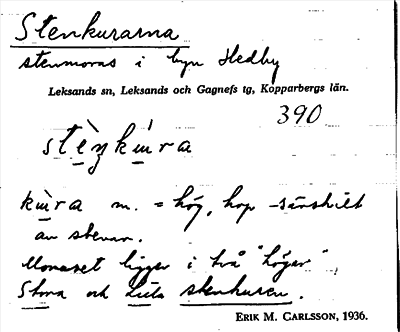 Stenkurarna
stenmoras i byn Hedby
Leksands sn, Leksands och Gagnefs tg, Kopparbergs län.
390
stè̱ŋkú̱ra
kù̱ra m. = hög, hop särskilt
av stenar.
Moraset ligger i två "högar"
Stora och Lilla stenkuren.
ERIK M. CARLSSON, 1936.